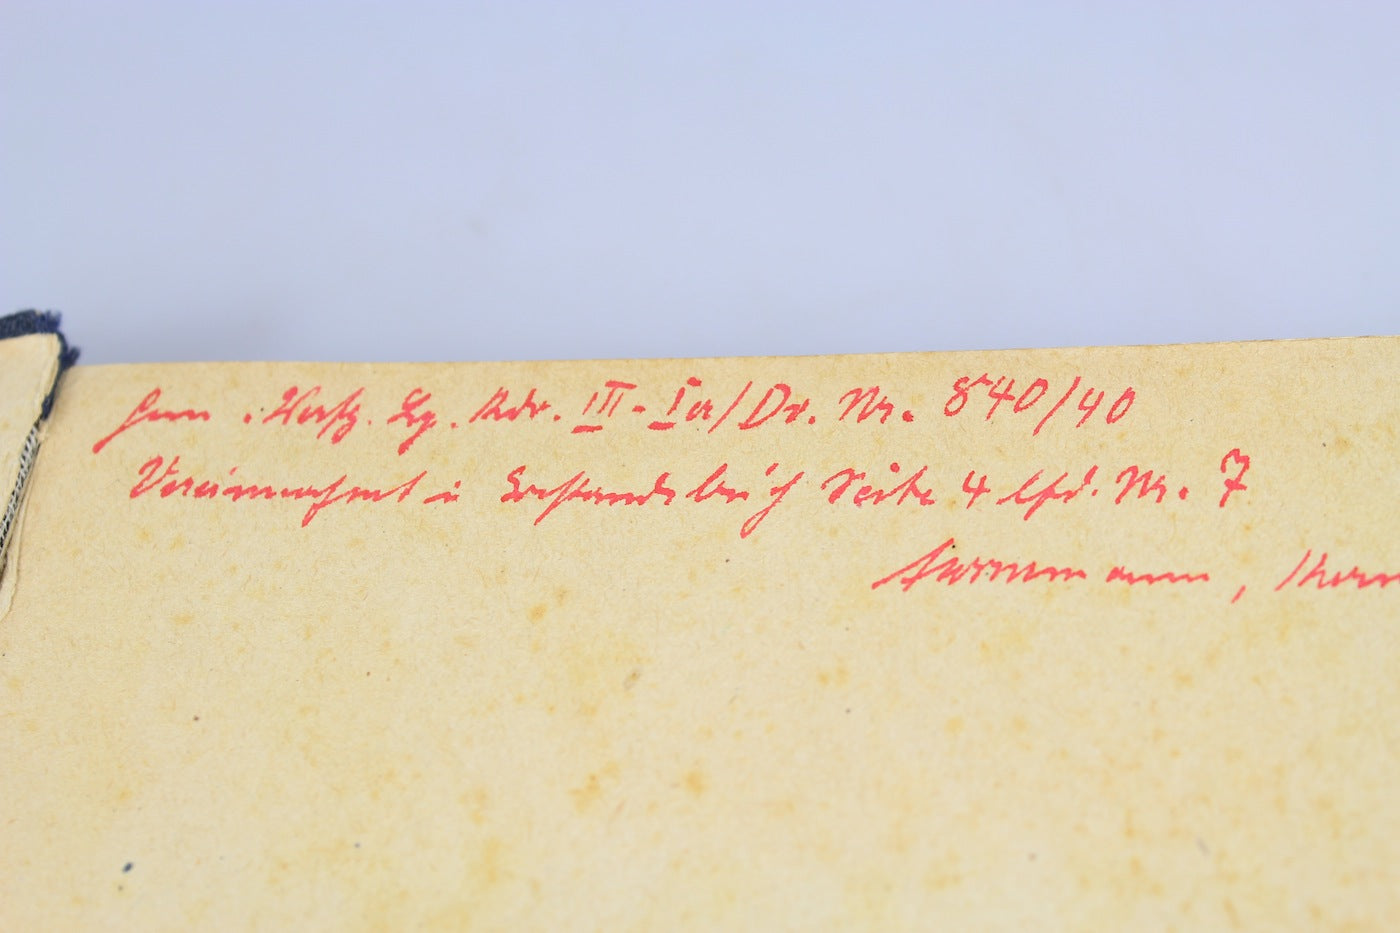 Gem. Verfg. Lg. Kdo. III - Ia/Dr. Nr. 840/40
Vereinnahmt i Bestandsbuch Seite 4 lfd. Nr. 7